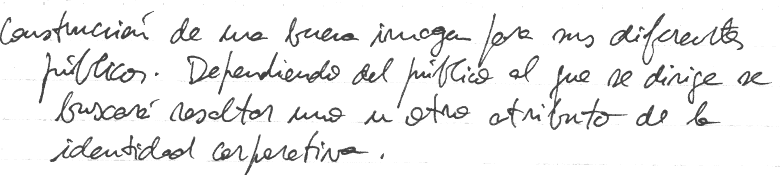 Construcción de una buena imagen para sus diferentes
públicos. Dependiendo del público al que se dirige se
buscará resaltar uno u otro atributo de la
identidad corporativa.